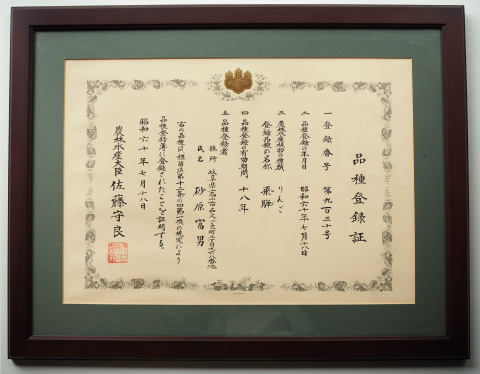 品種登録証
一 登録番号 第九百三十号
二 品種登録の年月日 昭和六十年七月十八日
三 農林水産植物の種類 りんご
登録品種の名称 飛騨
四 品種登録の有効期間 十八年
五 品種登録者
住所 岐阜県高山市
氏名 砂原富男
右の品種は、種苗法第十二条の四第一項の規定により
品種登録簿に登録されたことを証明する。
昭和六十年七月十八日
農林水産大臣 佐藤守良